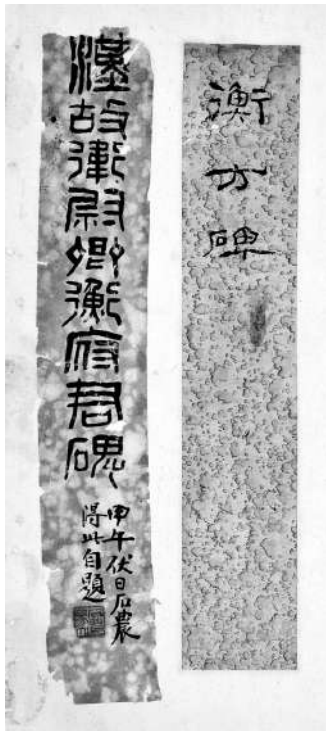 衡方碑
漢故衛尉卿衡府君碑
甲午伏日石農
得此自題